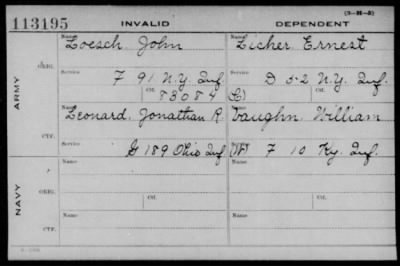 (3-H-5)
113195 INVALID DEPENDENT
Name Name
Loesch, John Zicher Ernest
ORIG. Service Ctf. Service Ctf.
F 91 N.Y. Inf. D 52 N.Y. Inf.
83084
ARMY
Name Name
Leonard, Jonathan R. Vaughn William
CTF. Service Service
G 189 Ohio Inf. (W) F 10 Ky. Inf.
NAVY
Name Name
ORIG. Ctf. Ctf.
Name Name
CTF.